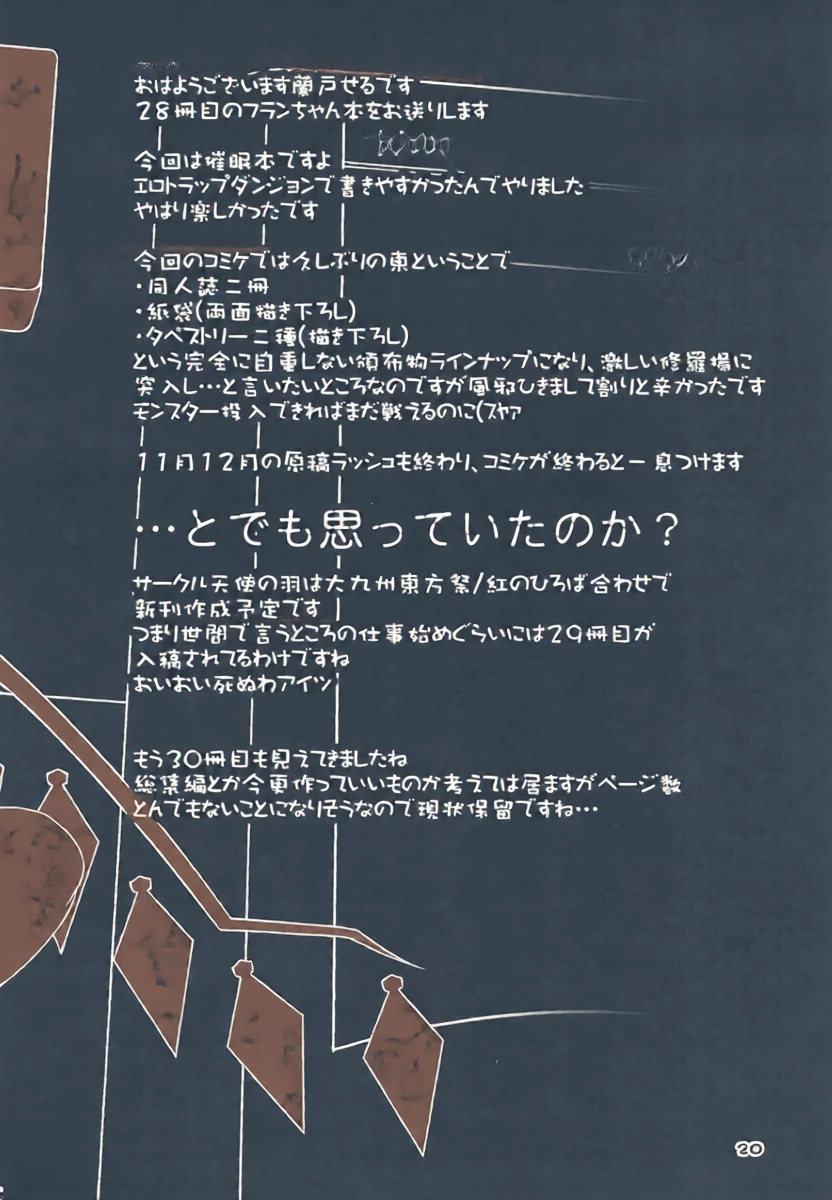 おはようございます蘭戸せるです
28冊目のフランちゃん本をお送りします
今回は催眠本ですよ
エロトラップダンジョンで書きやすかったんでやりました
やはり楽しかったです
今回のコミケでは久しぶりの東ということで
・同人誌二冊
・紙袋(両面描き下ろし)
・タペストリー二種(描き下ろし)
という完全に自重しない頒布物ラインナップになり、激しい修羅場に
突入し…と言いたいところなのですが風邪ひきまして割りと辛かったです
モンスター投入できればまだ戦えるのに(スヤァ
11月12月の原稿ラッシュも終わり、コミケが終わると一息つけます
…とでも思っていたのか？
サークル天使の羽は大九州東方祭/紅のひろば合わせで
新刊作成予定です
つまり世間で言うところの仕事始めぐらいには29冊目が
入稿されてるわけですね
おいおい死ぬわアイツ
もう30冊目も見えてきましたね
総集編とか今更作っていいものか考えては居ますがページ数
とんでもないことになりそうなので現状保留ですね…
20